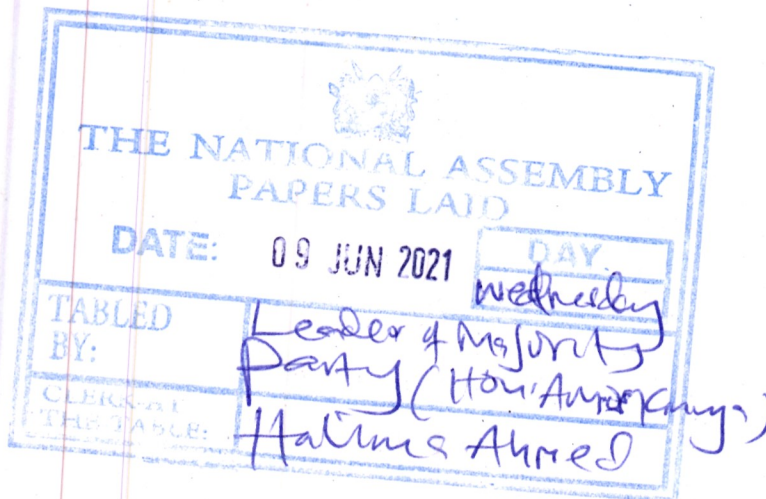 THE NATIONAL ASSEMBLY
PAPERS LAID
DATE: 09 JUN 2021
DAY
Wednesday
TABLED BY:
Leader of Majority
Party (Hon.
CLERK-AT THE TABLE:
Halima Ahmed